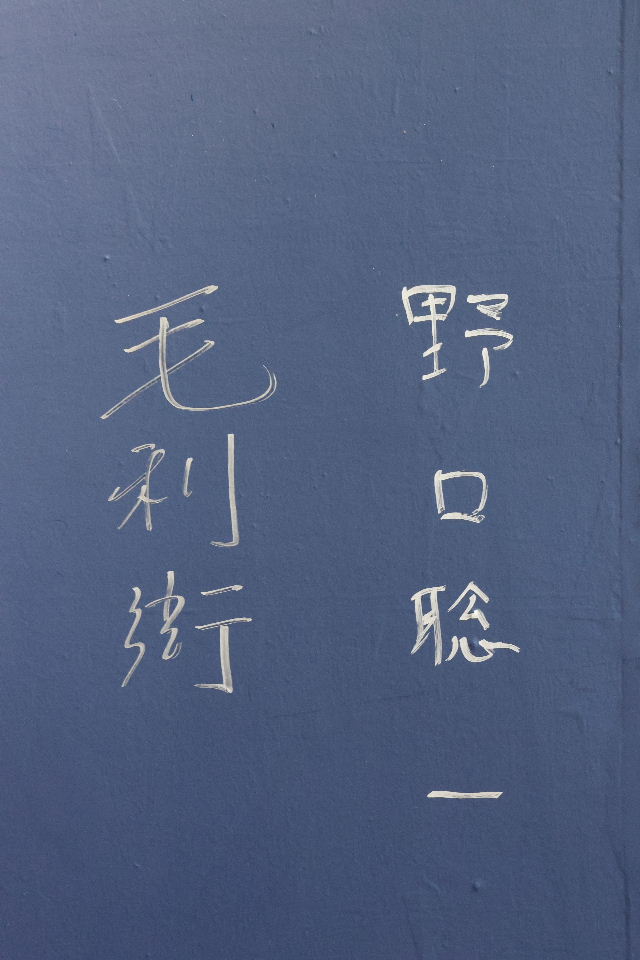 野口聡一
毛利衛